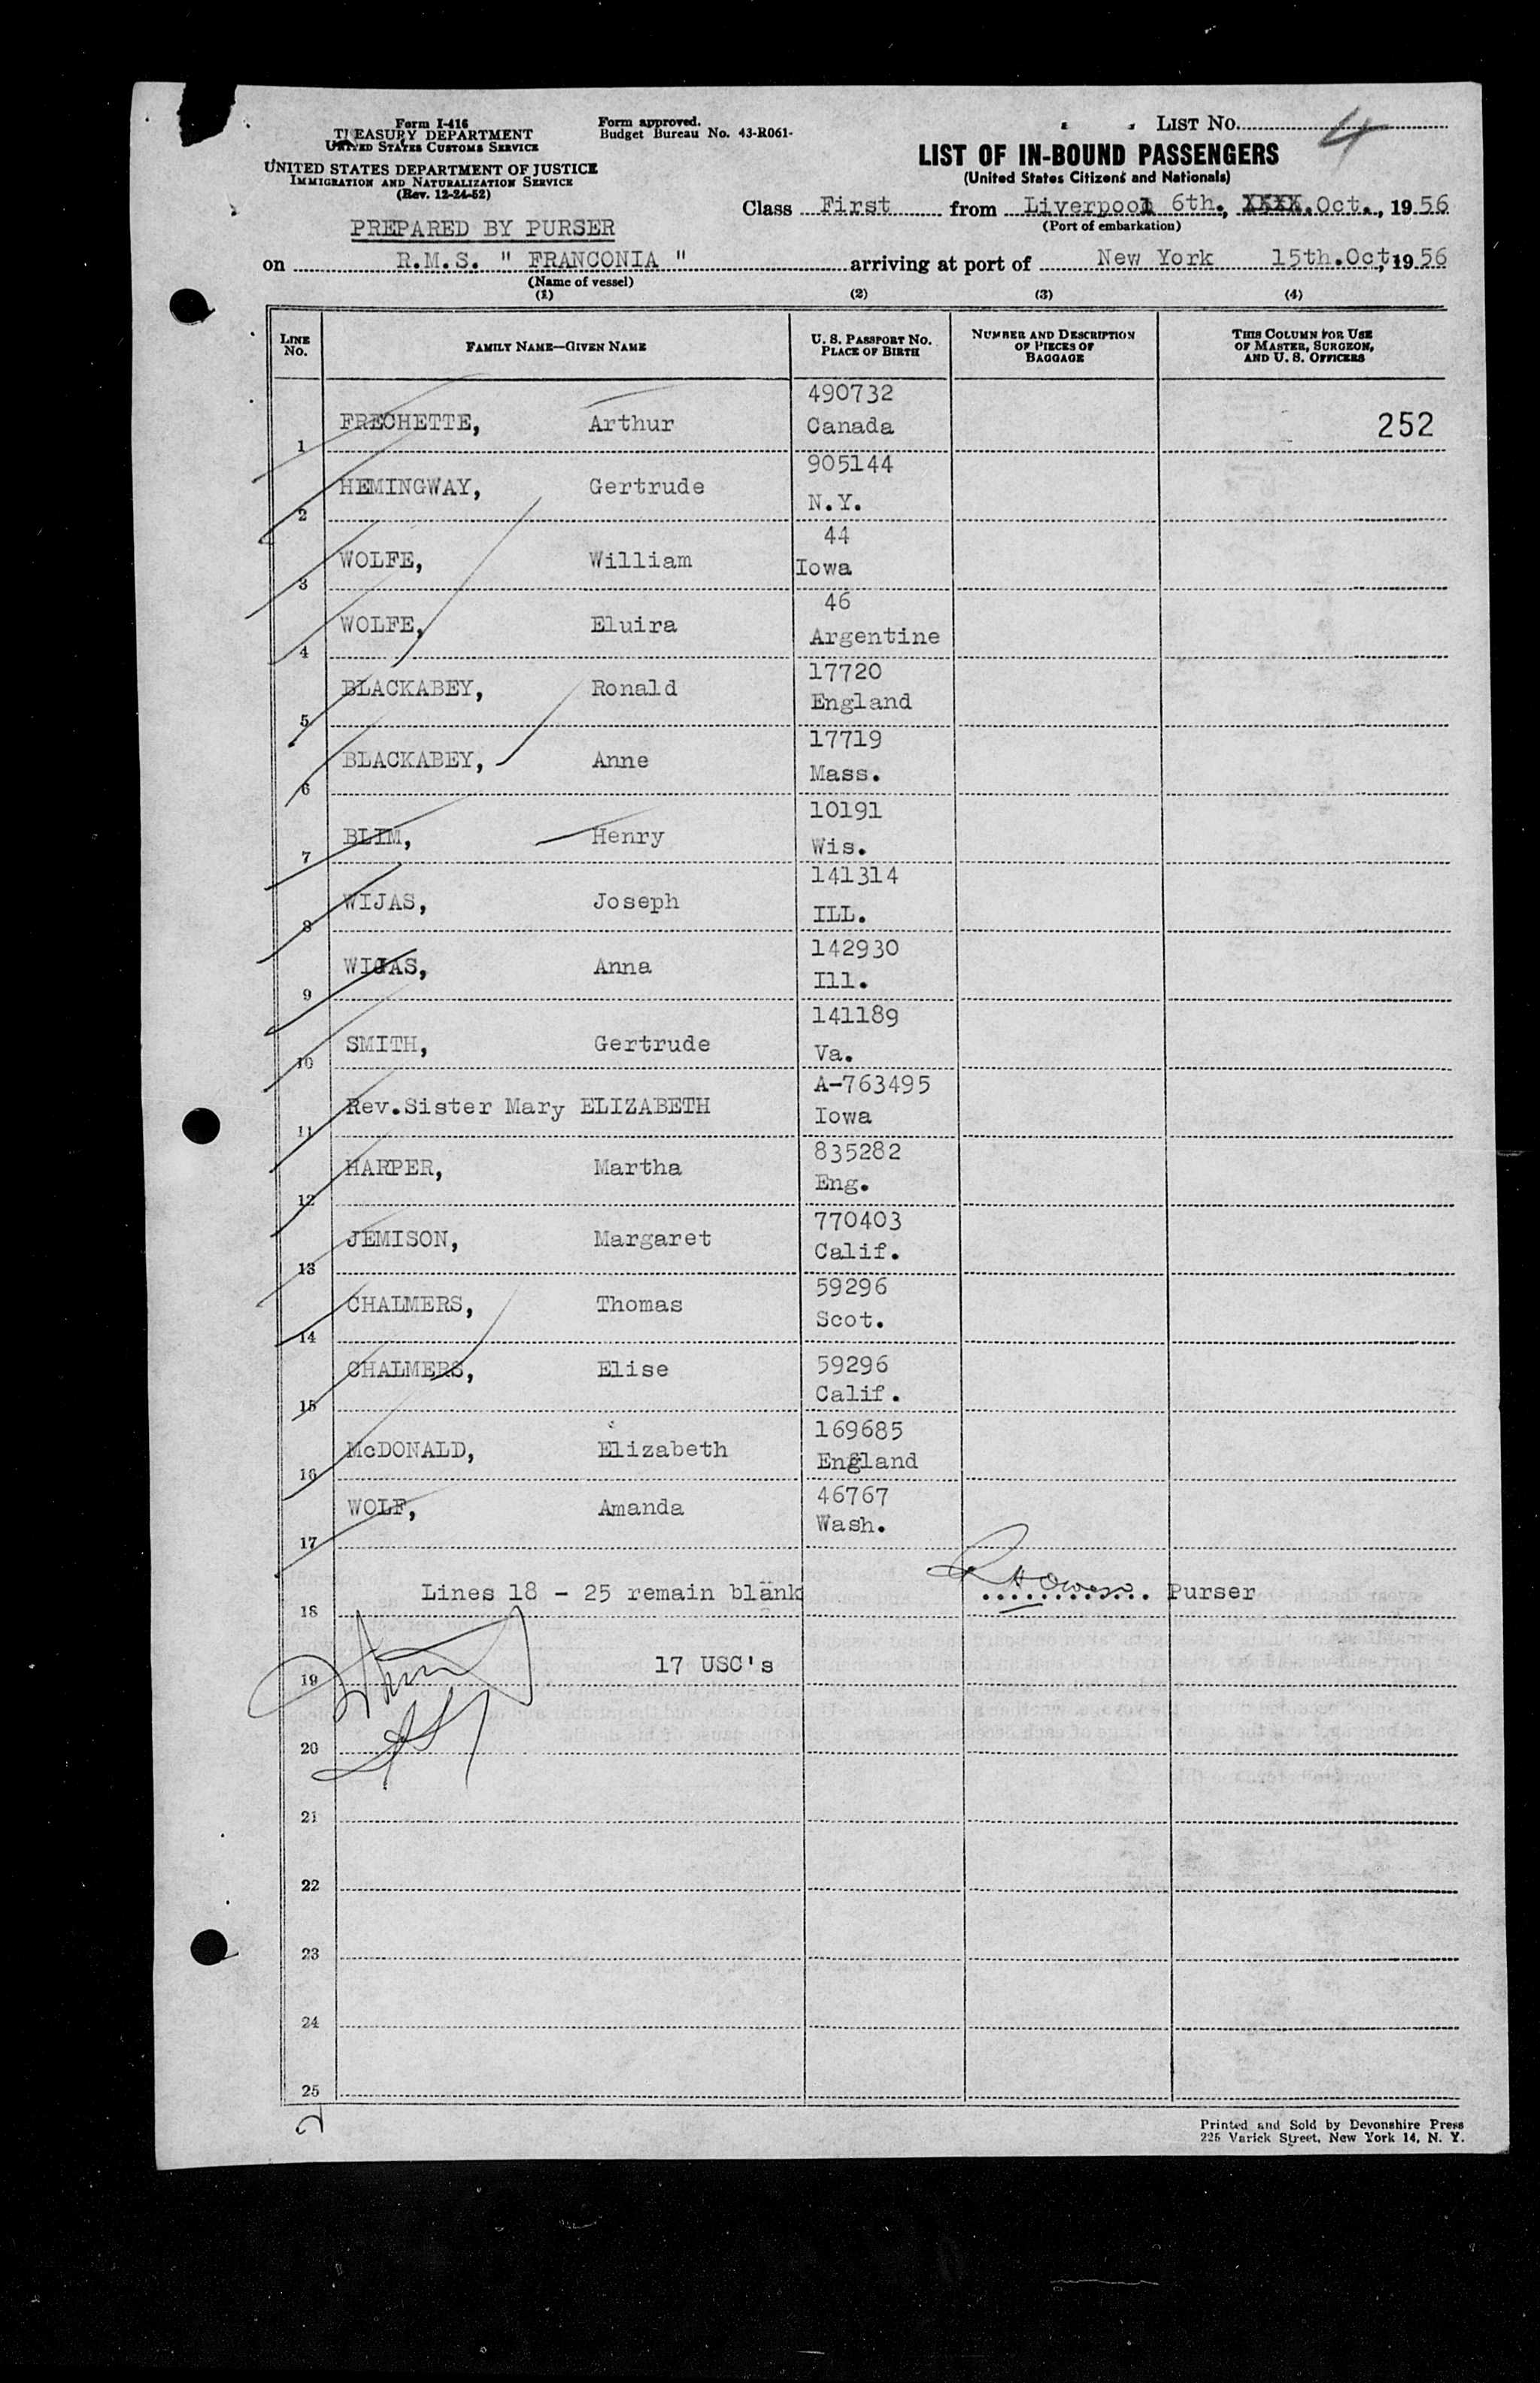 Form I-416
TREASURY DEPARTMENT
UNITED STATES CUSTOMS SERVICE
UNITED STATES DEPARTMENT OF JUSTICE
IMMIGRATION AND NATURALIZATION SERVICE
(Rev. 12-24-52)
Form approved.
Budget Bureau No. 43-R061-
LIST No. 4
LIST OF IN-BOUND PASSENGERS
(United States Citizens and Nationals)
Class First from Liverpool 6th., XXXX.Oct., 1956
(Port of embarkation)
PREPARED BY PURSER
on R.M.S. " FRANCONIA " arriving at port of New York 15th.Oct, 1956
(Name of vessel)
(1) (2) (3) (4)
LINE No. FAMILY NAME—GIVEN NAME U. S. PASSPORT No. PLACE OF BIRTH NUMBER AND DESCRIPTION OF PIECES OF BAGGAGE THIS COLUMN FOR USE OF MASTER, SURGEON, AND U. S. OFFICERS
490732
1 FRECHETTE, Arthur Canada 252
905144
2 HEMINGWAY, Gertrude N.Y.
44
3 WOLFE, William Iowa
46
4 WOLFE, Eluira Argentine
17720
5 BLACKABEY, Ronald England
17719
6 BLACKABEY, Anne Mass.
10191
7 BLIM, Henry Wis.
141314
8 WIJAS, Joseph ILL.
142930
9 WIJAS, Anna Ill.
141189
10 SMITH, Gertrude Va.
A-763495
11 Rev.Sister Mary ELIZABETH Iowa
835282
12 HARPER, Martha Eng.
770403
13 JEMISON, Margaret Calif.
59296
14 CHALMERS, Thomas Scot.
59296
15 CHALMERS, Elise Calif.
169685
16 McDONALD, Elizabeth England
46767
17 WOLF, Amanda Wash.
18 Lines 18 - 25 remain blank Purser
19 17 USC's
20
21
22
23
24
25
2
Printed and Sold by Devonshire Press
225 Varick Street, New York 14, N. Y.